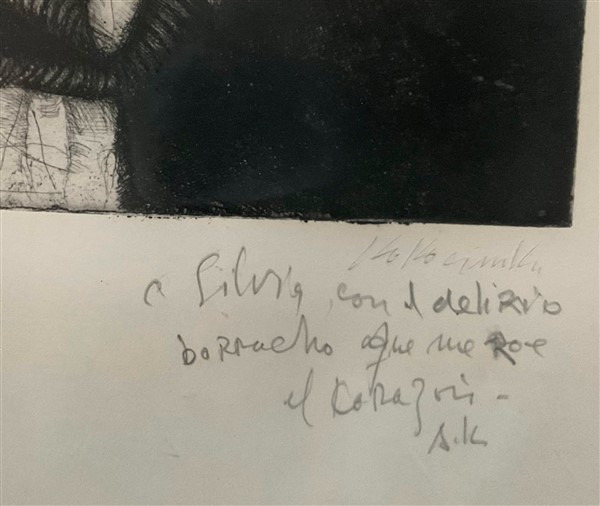 Kokocinski
a Silvia, con el delirio
borracho que me roe
el korazón -
A.K